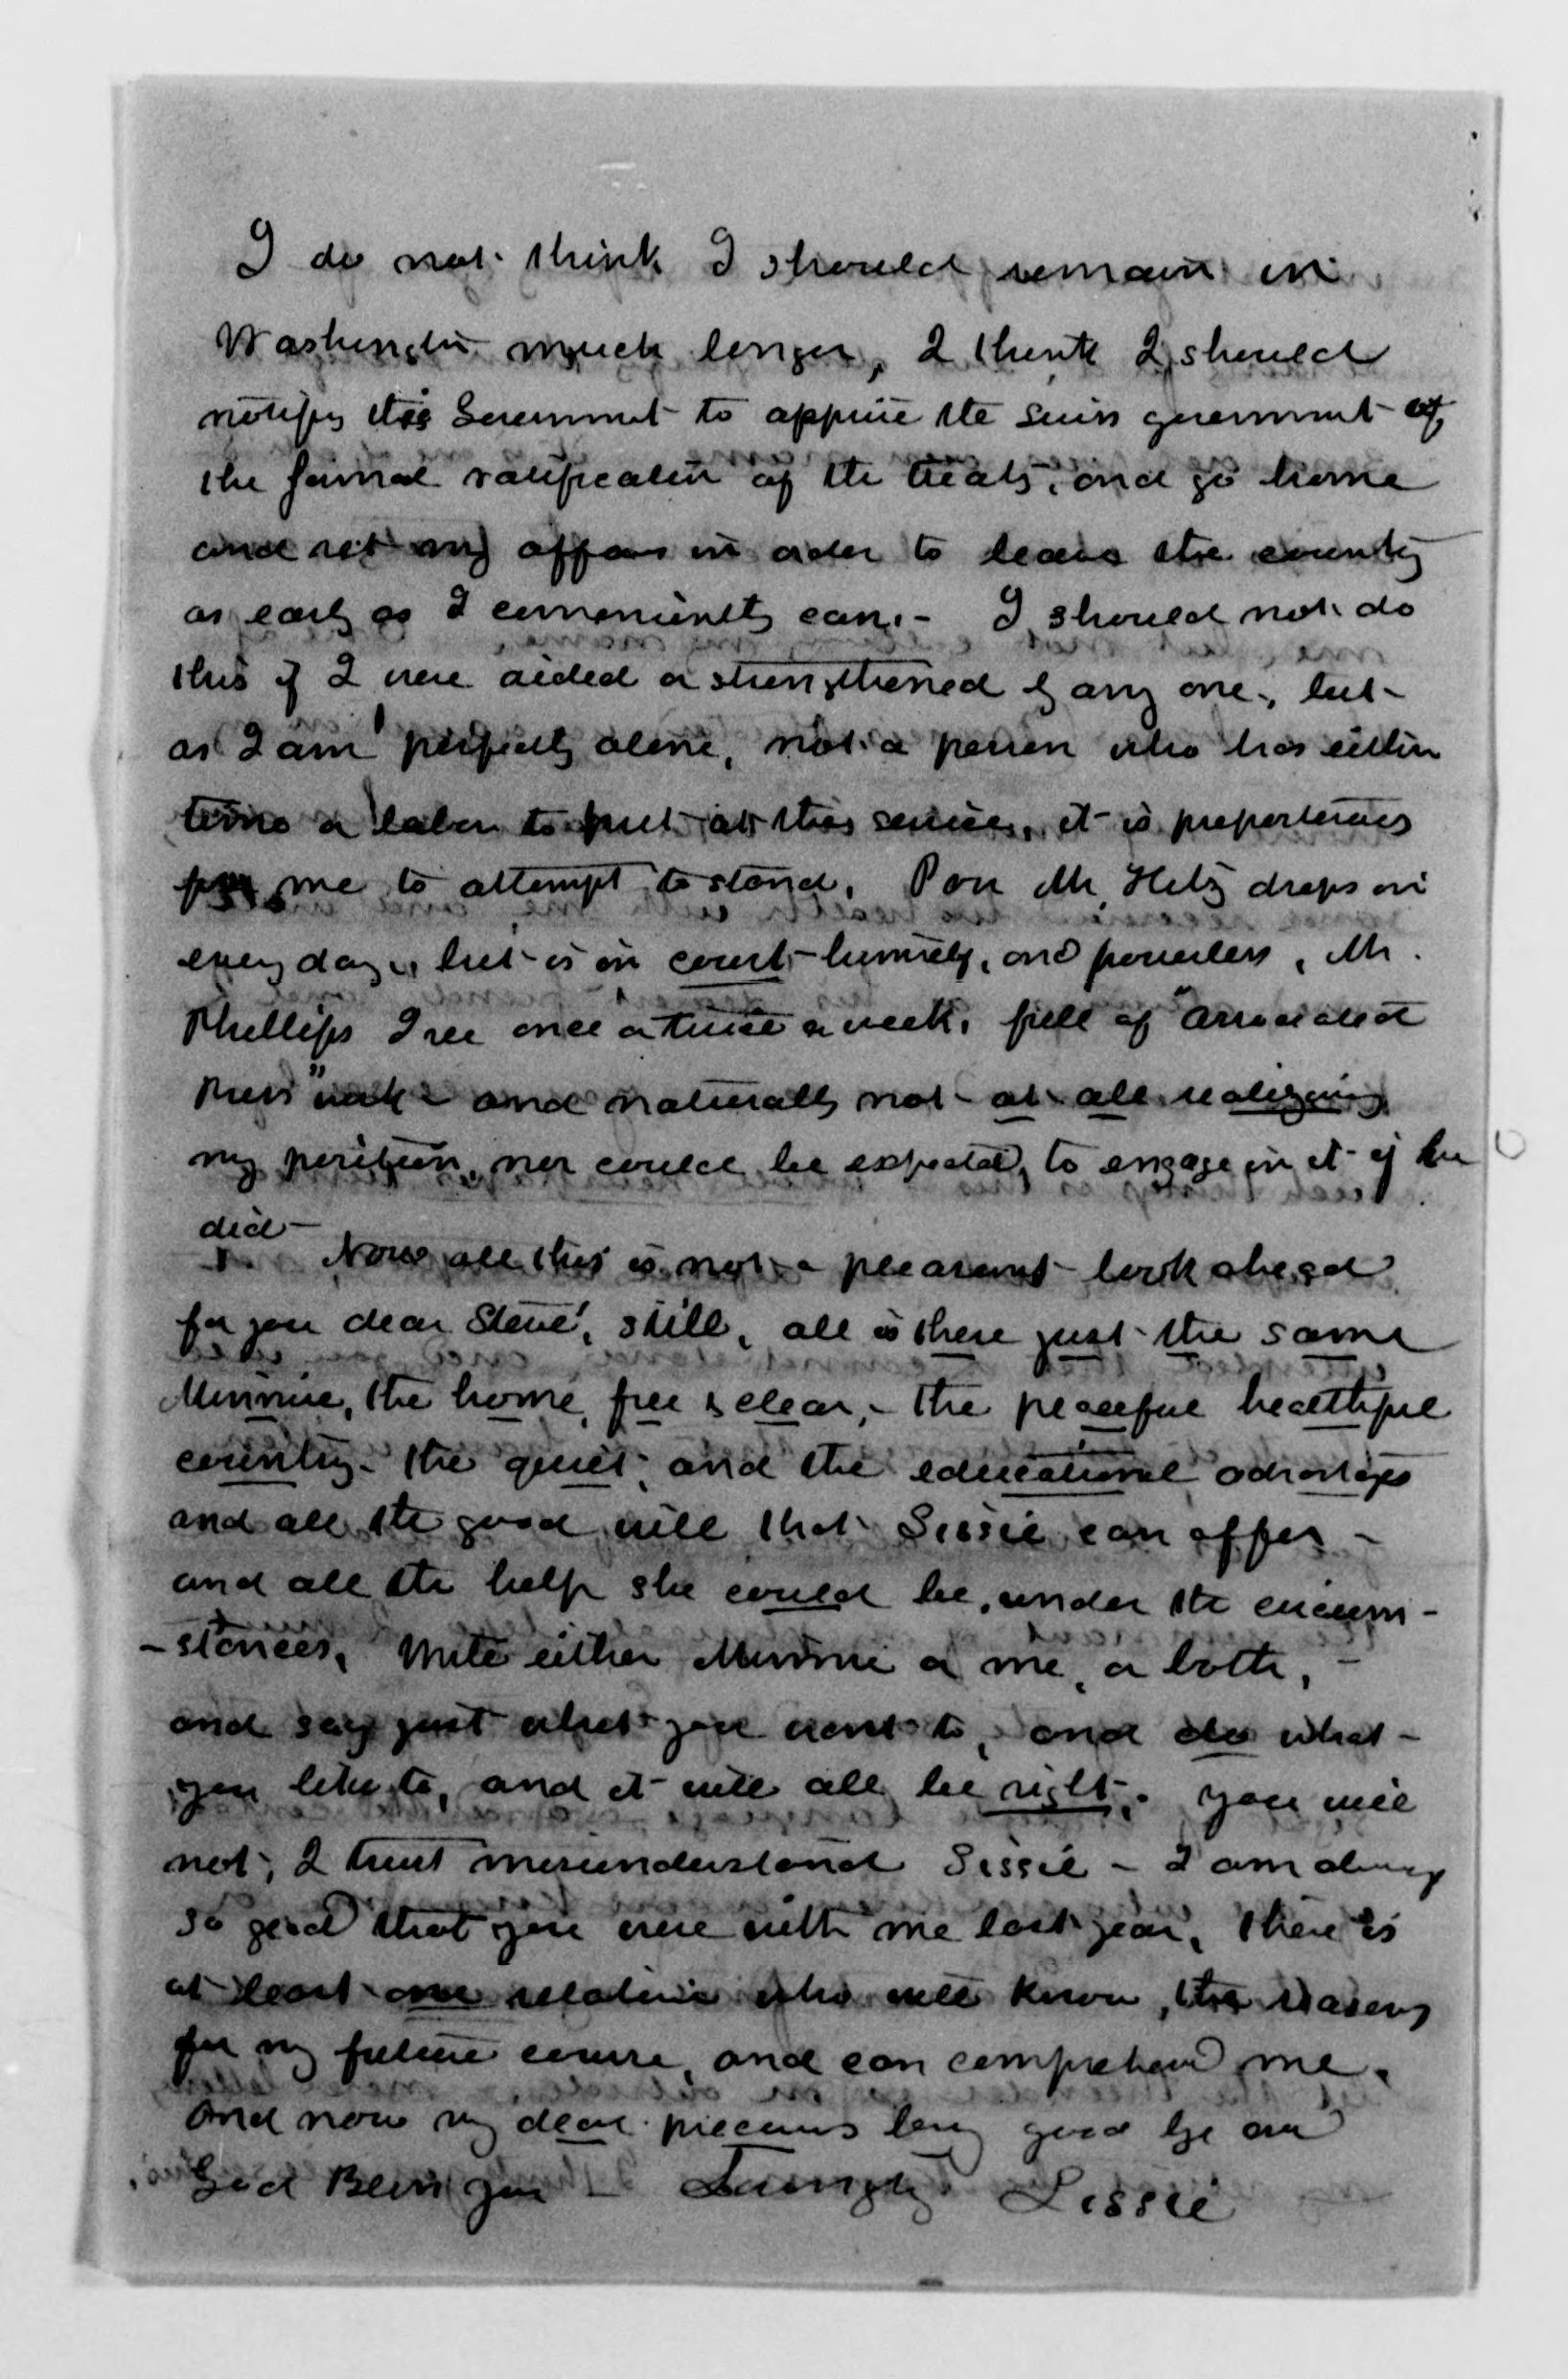 I do not think I should remain in
Washington much longer, I think I should
notify this Government to apprise the Swiss government of
the formal ratification of the treaty, and go home
and set my affairs in order to leave the country
as early as I conveniently can. - I should not do
this if I were aided or strengthened by any one, but -
as I am perfectly alone, not a person who has either
time or labor to put at this service, it is preposterous
for me to attempt to stand. Poor Mr. Hitz drops in
every day, but is in court himself, and powerless, Mr.
Phillips I see once or twice a week, full of "Associated
Press" work - and naturally not at all realizing
my position, nor could be expected, to engage in it if he
did -
Now all this is not a pleasant look ahead
for you dear Steve, still, all is there just the same
Minnie, the home, free & clear, - the peaceful healthful
country - the quiet, and the educational advantages
and all the good will that Sissie can offer -
and all the help she could be, under the circum-
-stances. Write either Minnie or me, or both, -
and say just what you want to, and do what -
you like to, and it will all be right. you will
not, I trust misunderstand Sissie - I am always
so glad that you were with me last year, there is
at least one relative who will know, the reasons
for my future course, and can comprehend me.
And now my dear precious boy good bye and
God Bless you - Lovingly Sissie